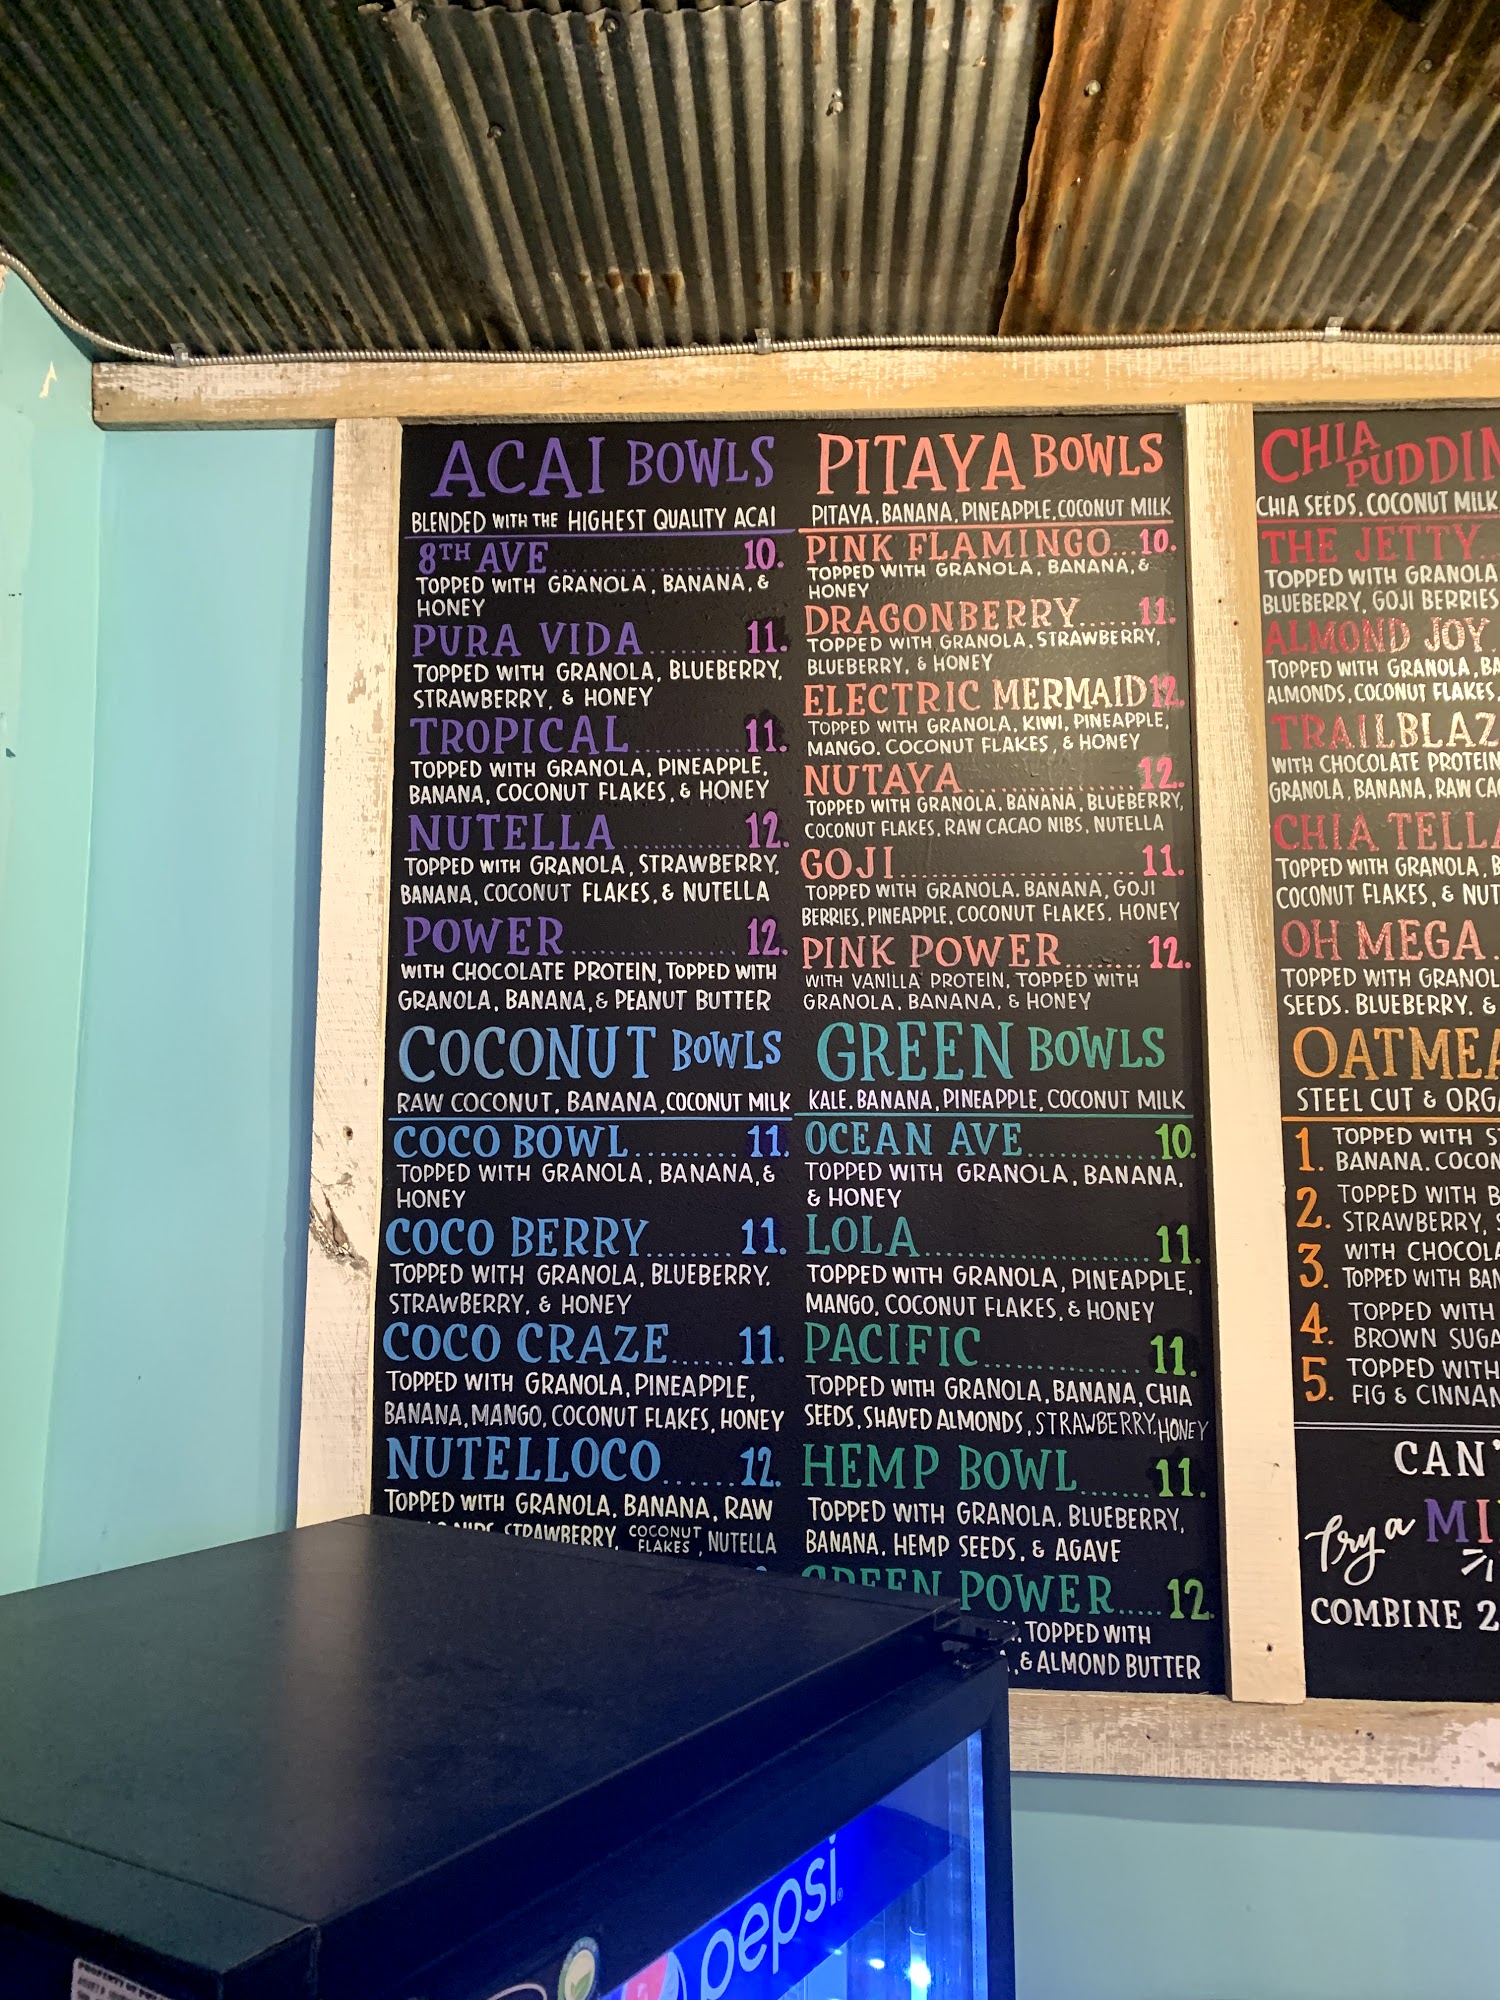 ACAI BOWLS
BLENDED WITH THE HIGHEST QUALITY ACAI
8TH AVE..................10.
TOPPED WITH GRANOLA, BANANA, &
HONEY
PURA VIDA.........11.
TOPPED WITH GRANOLA, BLUEBERRY,
STRAWBERRY, & HONEY
TROPICAL..........11.
TOPPED WITH GRANOLA, PINEAPPLE,
BANANA, COCONUT FLAKES, & HONEY
NUTELLA............12.
TOPPED WITH GRANOLA, STRAWBERRY,
BANANA, COCONUT FLAKES, & NUTELLA
POWER................12.
WITH CHOCOLATE PROTEIN, TOPPED WITH
GRANOLA, BANANA, & PEANUT BUTTER
COCONUT BOWLS
RAW COCONUT, BANANA, COCONUT MILK
COCO BOWL.........11.
TOPPED WITH GRANOLA, BANANA, &
HONEY
COCO BERRY........11.
TOPPED WITH GRANOLA, BLUEBERRY,
STRAWBERRY, & HONEY
COCO CRAZE......11.
TOPPED WITH GRANOLA, PINEAPPLE,
BANANA, MANGO, COCONUT FLAKES, HONEY
NUTELLOCO......12.
TOPPED WITH GRANOLA, BANANA, RAW
NIBS, STRAWBERRY, COCONUT FLAKES, NUTELLA
PITAYA BOWLS
PITAYA, BANANA, PINEAPPLE, COCONUT MILK
PINK FLAMINGO...10.
TOPPED WITH GRANOLA, BANANA, &
HONEY
DRAGONBERRY......11.
TOPPED WITH GRANOLA, STRAWBERRY,
BLUEBERRY, & HONEY
ELECTRIC MERMAID 12.
TOPPED WITH GRANOLA, KIWI, PINEAPPLE,
MANGO, COCONUT FLAKES, & HONEY
NUTAYA.................12.
TOPPED WITH GRANOLA, BANANA, BLUEBERRY,
COCONUT FLAKES, RAW CACAO NIBS, NUTELLA
GOJI........................11.
TOPPED WITH GRANOLA, BANANA, GOJI
BERRIES, PINEAPPLE, COCONUT FLAKES, HONEY
PINK POWER........12.
WITH VANILLA PROTEIN, TOPPED WITH
GRANOLA, BANANA, & HONEY
GREEN BOWLS
KALE, BANANA, PINEAPPLE, COCONUT MILK
OCEAN AVE............10.
TOPPED WITH GRANOLA, BANANA,
& HONEY
LOLA.....................11.
TOPPED WITH GRANOLA, PINEAPPLE,
MANGO, COCONUT FLAKES, & HONEY
PACIFIC..............11.
TOPPED WITH GRANOLA, BANANA, CHIA
SEEDS, SHAVED ALMONDS, STRAWBERRY, HONEY
HEMP BOWL.......11.
TOPPED WITH GRANOLA, BLUEBERRY,
BANANA, HEMP SEEDS, & AGAVE
GREEN POWER.....12.
TOPPED WITH
, & ALMOND BUTTER
CHIA PUDDIN
CHIA SEEDS, COCONUT MILK
THE JETTY
TOPPED WITH GRANOLA
BLUEBERRY, GOJI BERRIES
ALMOND JOY
TOPPED WITH GRANOLA, BA
ALMONDS, COCONUT FLAKES,
TRAILBLAZ
WITH CHOCOLATE PROTEIN
GRANOLA, BANANA, RAW CA
CHIA TELLA
TOPPED WITH GRANOLA, B
COCONUT FLAKES, & NUT
OH MEGA
TOPPED WITH GRANOL
SEEDS, BLUEBERRY, &
OATMEA
STEEL CUT & ORGA
1. TOPPED WITH ST
BANANA, COCON
2. TOPPED WITH B
STRAWBERRY, S
3. WITH CHOCOLA
TOPPED WITH BAN
4. TOPPED WITH
BROWN SUGA
5. TOPPED WITH
FIG & CINNAN
CAN'
Try a MI
COMBINE 2
pepsi